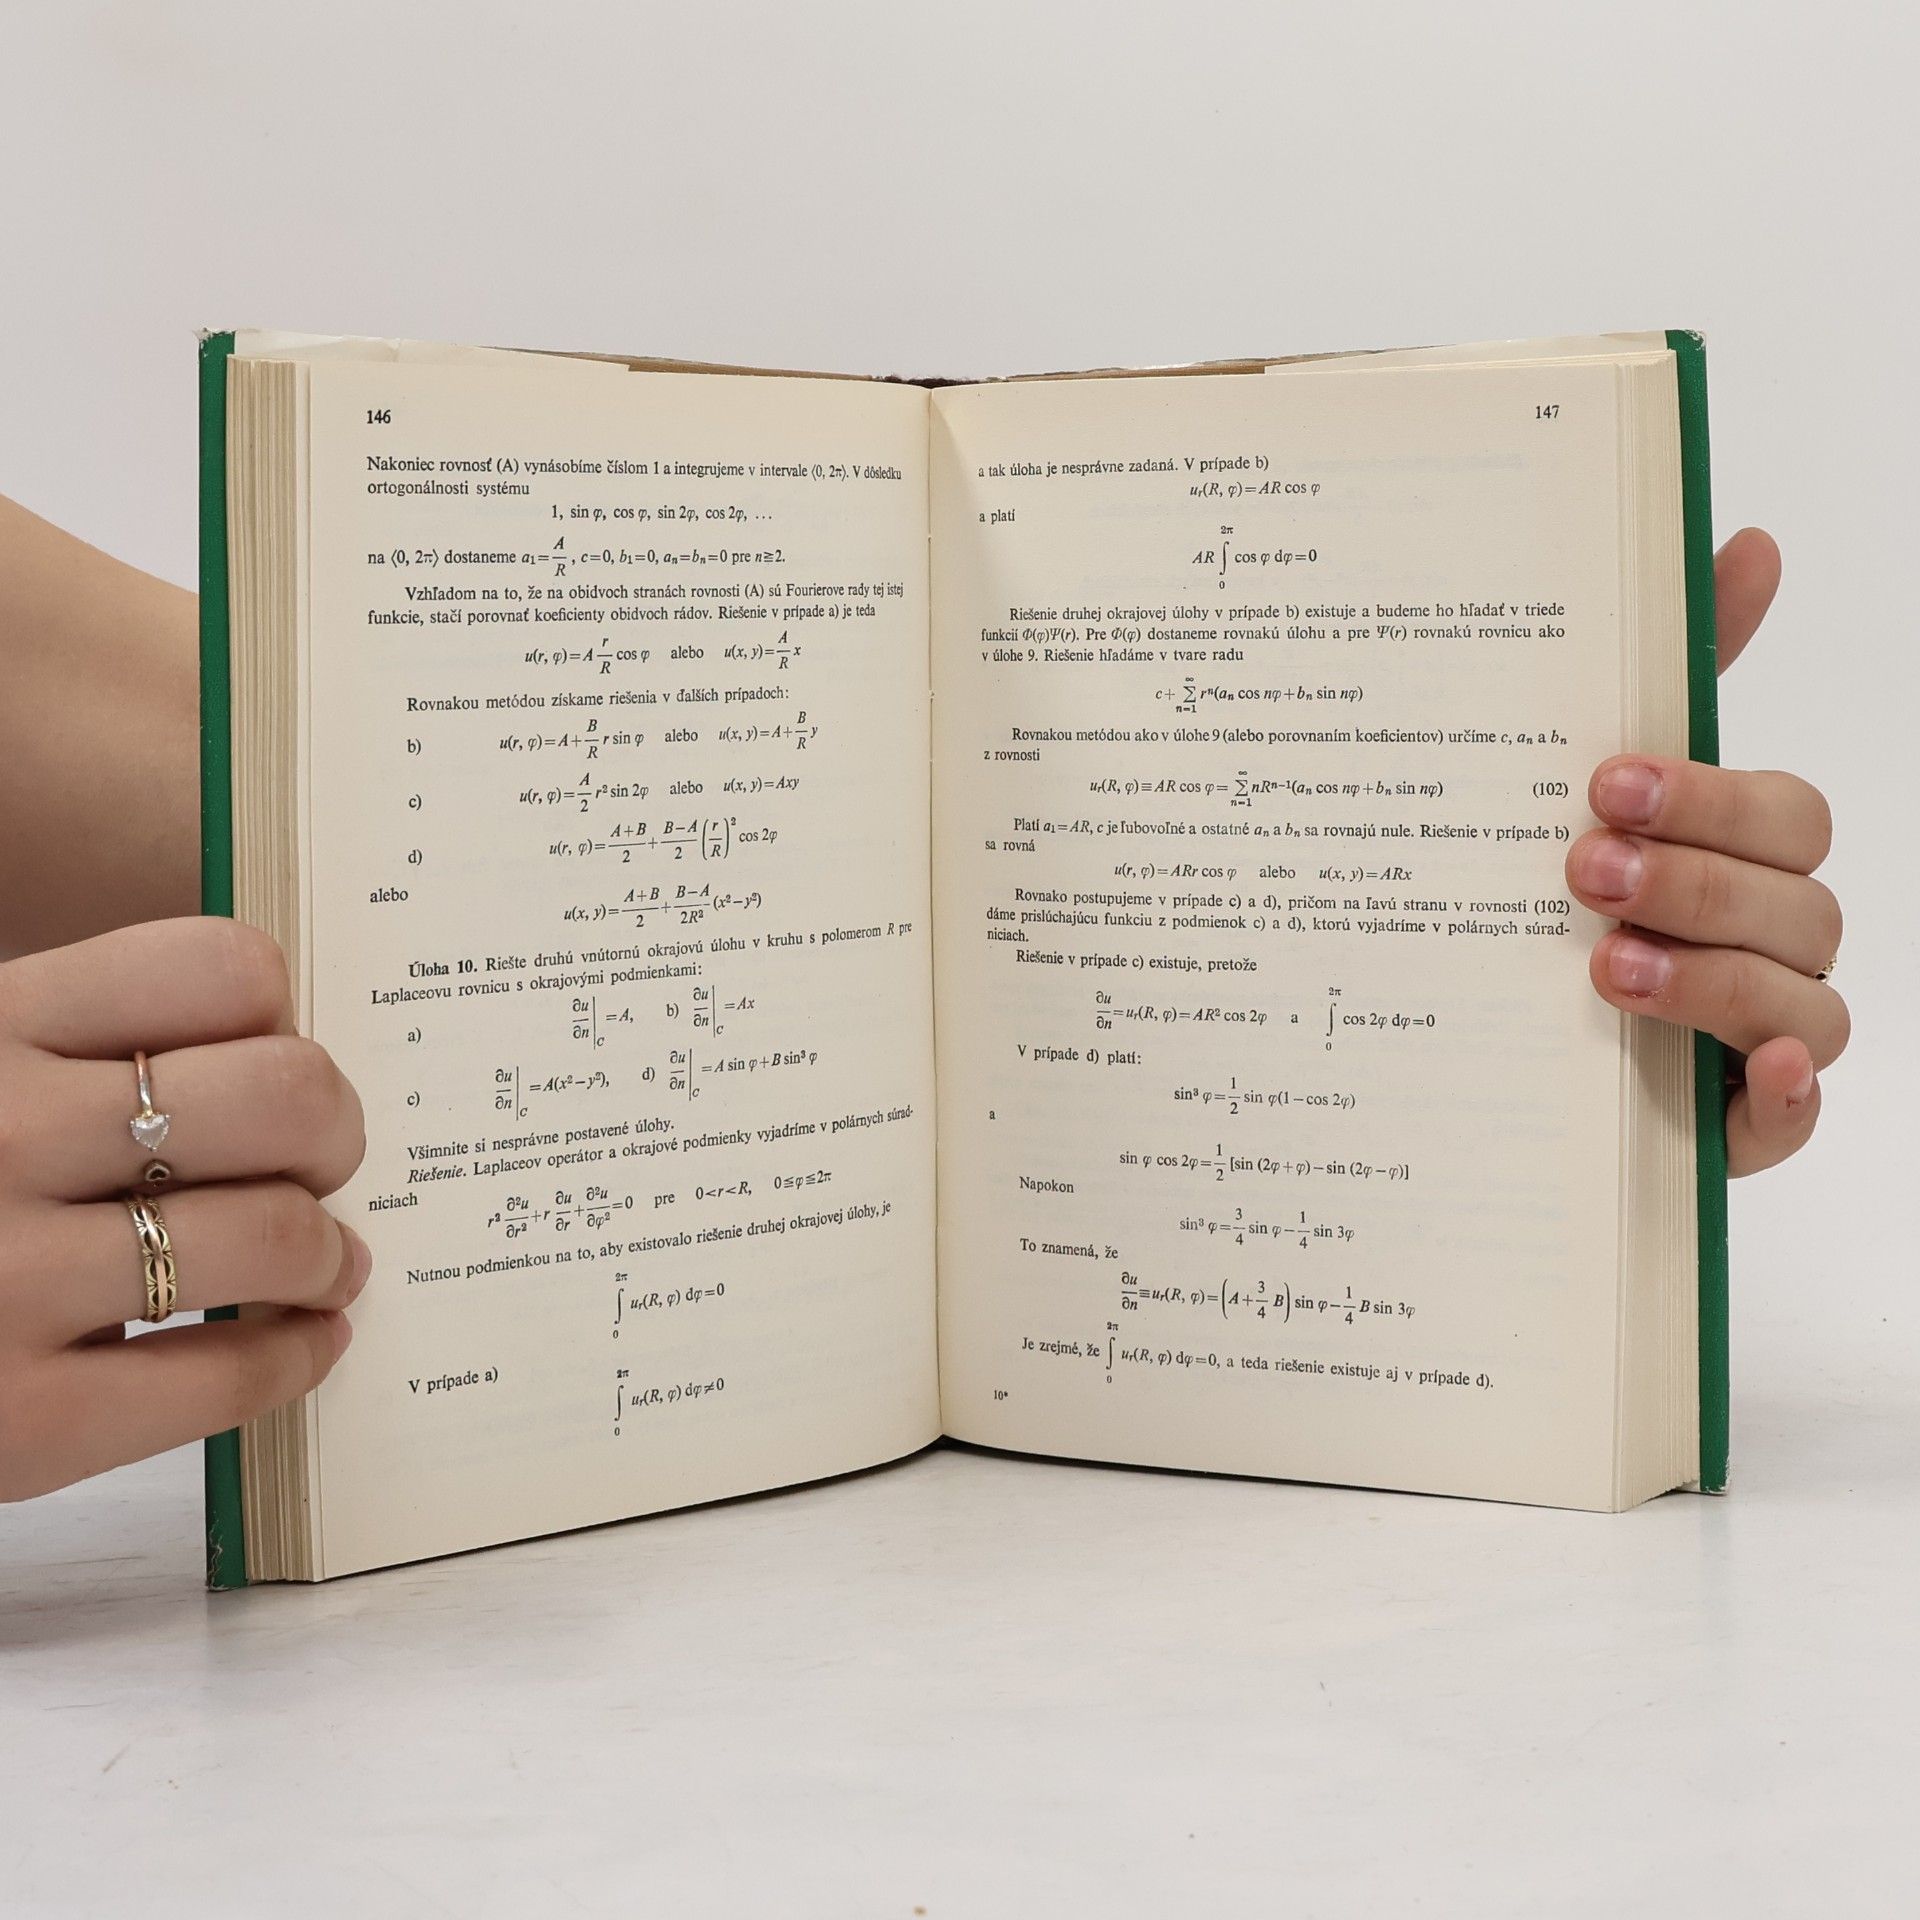 146
Nakoniec rovnosť (A) vynásobíme číslom 1 a integrujeme v intervale ⟨0, 2π⟩. V dôsledku
ortogonálnosti systému
1, sin φ, cos φ, sin 2φ, cos 2φ, ...
na ⟨0, 2π⟩ dostaneme a₁=A/R, c=0, b₁=0, aₙ=bₙ=0 pre n≧2.
Vzhľadom na to, že na obidvoch stranách rovnosti (A) sú Fourierove rady tej istej
funkcie, stačí porovnať koeficienty obidvoch rádov. Riešenie v prípade a) je teda
u(r, φ)=A r/R cos φ alebo u(x, y)=A/R x
Rovnakou metódou získame riešenia v ďalších prípadoch:
b) u(r, φ)=A+B/R r sin φ alebo u(x, y)=A+B/R y
c) u(r, φ)=A/2 r² sin 2φ alebo u(x, y)=Axy
d) u(r, φ)=(A+B)/2+(B−A)/2 (r/R)² cos 2φ
alebo
u(x, y)=(A+B)/2+(B−A)/2R² (x²−y²)
Úloha 10. Riešte druhú vnútornú okrajovú úlohu v kruhu s polomerom R pre
Laplaceovu rovnicu s okrajovými podmienkami:
a) ∂u/∂n|C =A, b) ∂u/∂n|C =Ax
c) ∂u/∂n|C =A(x²−y²), d) ∂u/∂n|C =A sin φ+B sin³ φ
Všimnite si nesprávne postavené úlohy.
Riešenie. Laplaceov operátor a okrajové podmienky vyjadríme v polárnych súrad-
niciach
r² ∂²u/∂r²+r ∂u/∂r+∂²u/∂φ²=0 pre 0<r<R, 0≦φ≦2π
Nutnou podmienkou na to, aby existovalo riešenie druhej okrajovej úlohy, je
∫₀^2π uᵣ(R, φ) dφ=0
V prípade a)
∫₀^2π uᵣ(R, φ) dφ≠0
147
a tak úloha je nesprávne zadaná. V prípade b)
uᵣ(R, φ)=AR cos φ
a platí
AR ∫₀^2π cos φ dφ=0
Riešenie druhej okrajovej úlohy v prípade b) existuje a budeme ho hľadať v triede
funkcií Φ(φ)Ψ(r). Pre Φ(φ) dostaneme rovnakú úlohu a pre Ψ(r) rovnakú rovnicu ako
v úlohe 9. Riešenie hľadáme v tvare radu
c+ ∑_{n=1}^∞ rⁿ(aₙ cos nφ+bₙ sin nφ)
Rovnakou metódou ako v úlohe 9 (alebo porovnaním koeficientov) určíme c, aₙ a bₙ
z rovnosti
uᵣ(R, φ)≡AR cos φ= ∑_{n=1}^∞ nRⁿ⁻¹(aₙ cos nφ+bₙ sin nφ) (102)
Platí a₁=AR, c je ľubovoľné a ostatné aₙ a bₙ sa rovnajú nule. Riešenie v prípade b)
sa rovná
u(r, φ)=ARr cos φ alebo u(x, y)=ARx
Rovnako postupujeme v prípade c) a d), pričom na ľavú stranu v rovnosti (102)
dáme prislúchajúcu funkciu z podmienok c) a d), ktorú vyjadríme v polárnych súrad-
niciach.
Riešenie v prípade c) existuje, pretože
∂u/∂n=uᵣ(R, φ)=AR² cos 2φ a ∫₀^2π cos 2φ dφ=0
V prípade d) platí:
sin³ φ=1/2 sin φ(1−cos 2φ)
a
sin φ cos 2φ=1/2 [sin (2φ+φ)−sin (2φ−φ)]
Napokon
sin³ φ=3/4 sin φ−1/4 sin 3φ
To znamená, že
∂u/∂n≡uᵣ(R, φ)=(A+3/4 B) sin φ−1/4 B sin 3φ
Je zrejmé, že ∫₀^2π uᵣ(R, φ) dφ=0, a teda riešenie existuje aj v prípade d).
10*